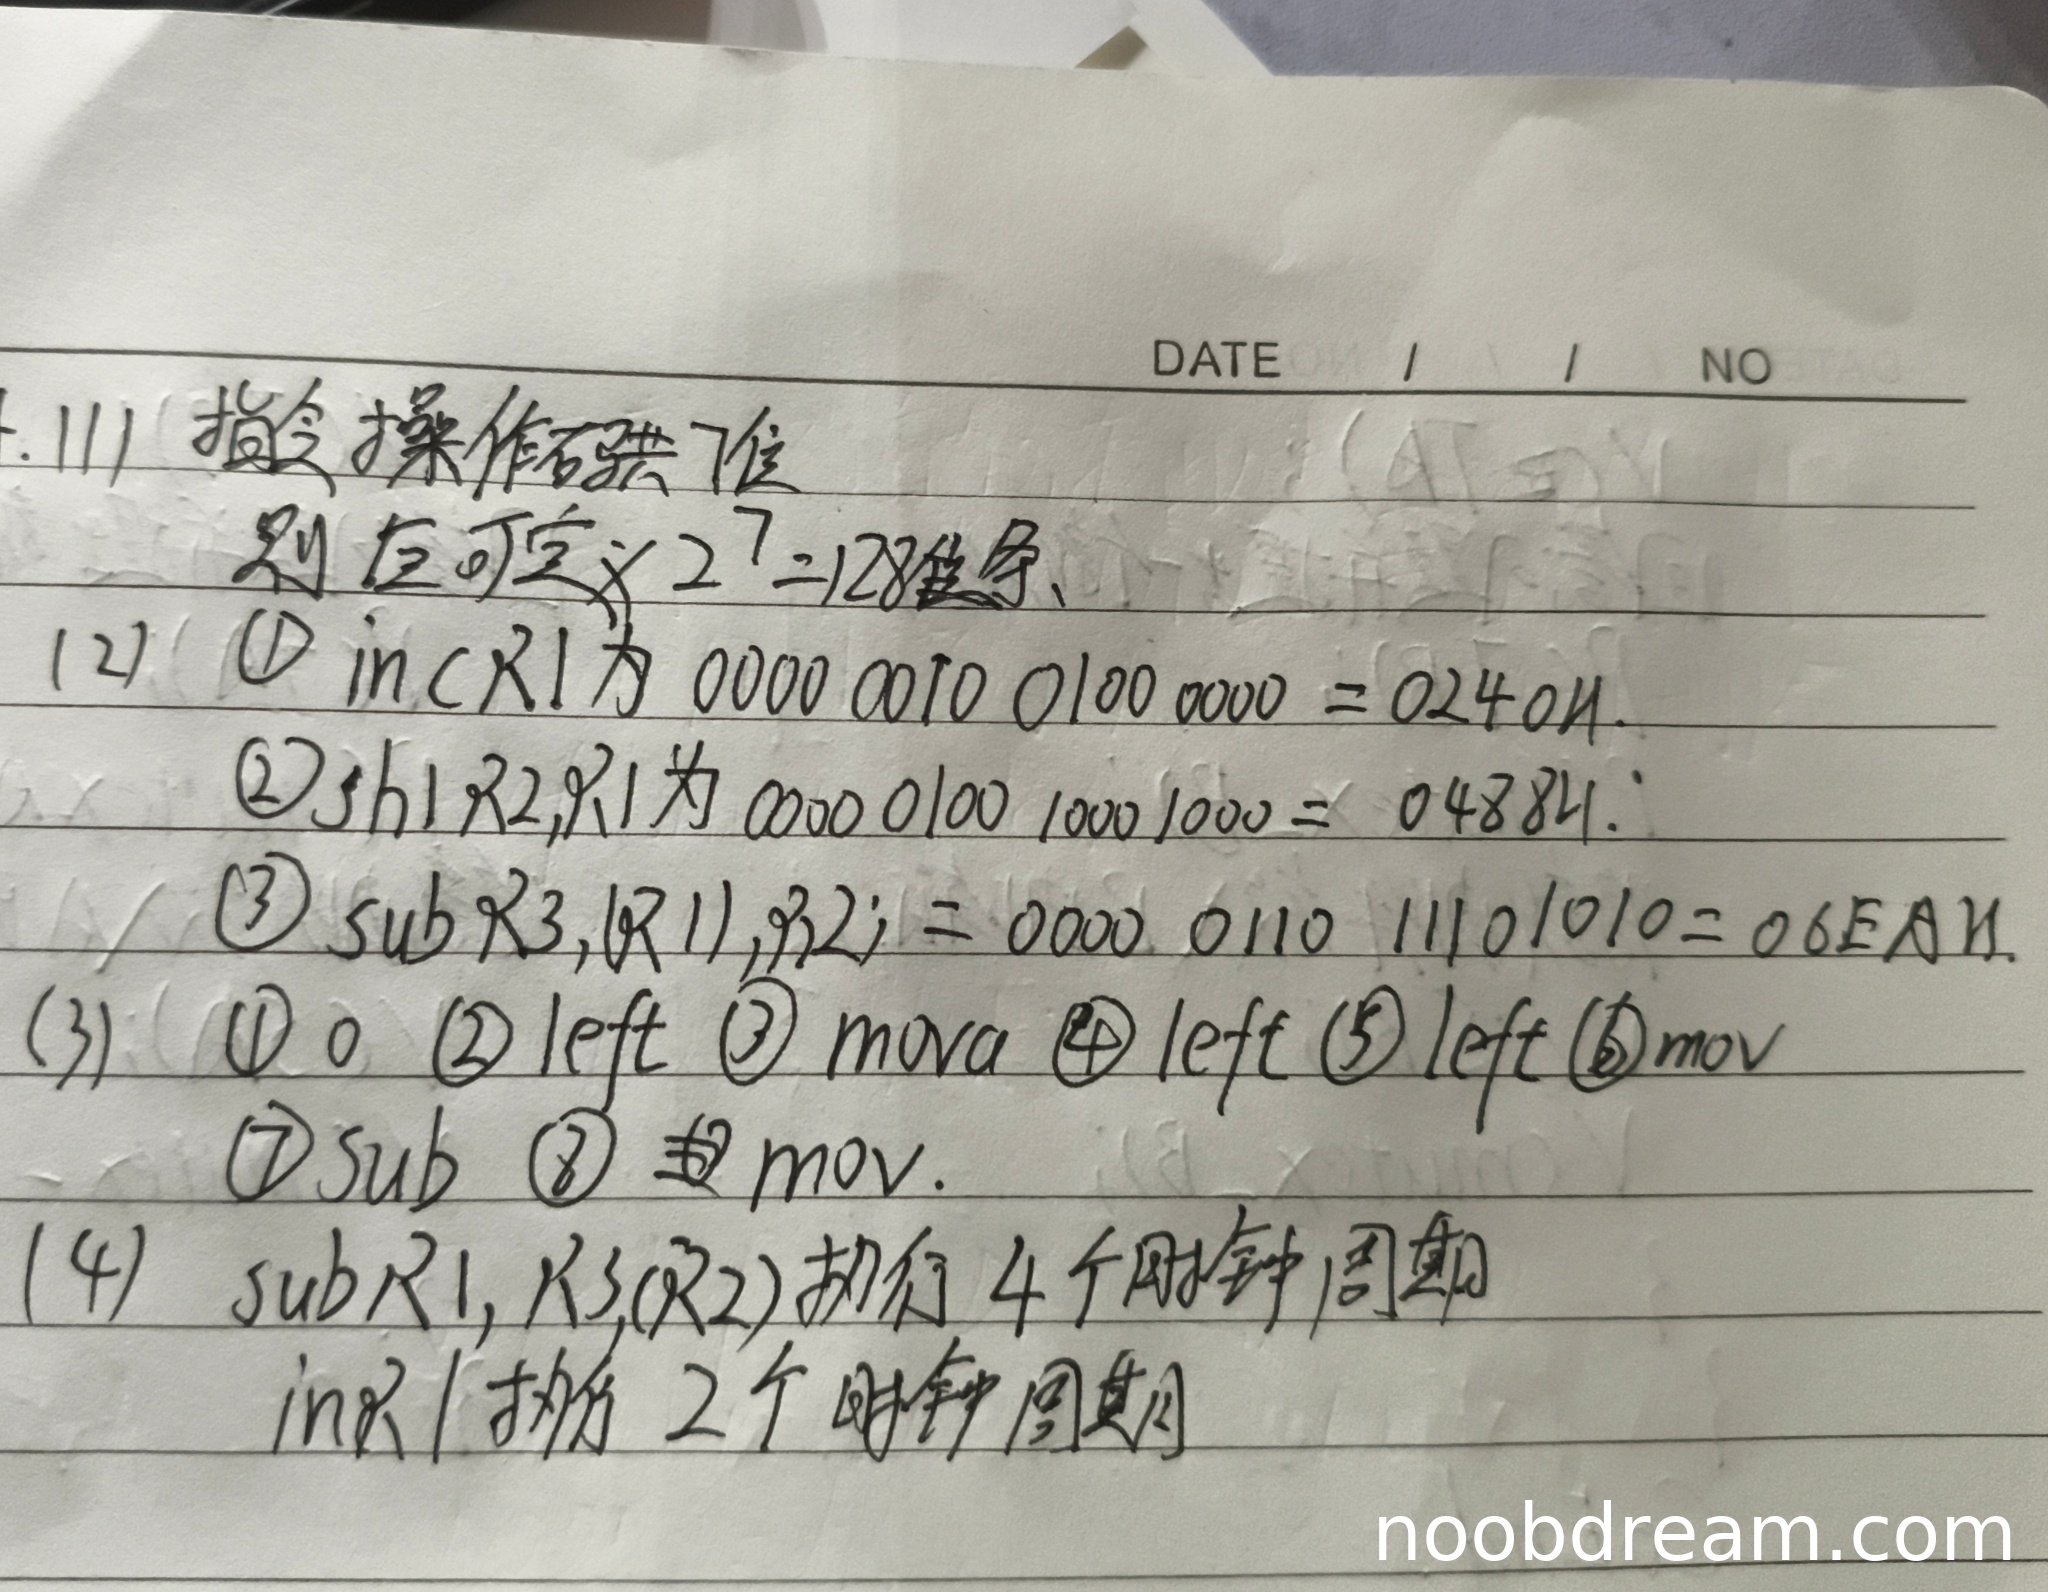 DATE / / NO
.(1) 指令操作码共7位
则左可定义 2⁷=128条、
(2) ① inc R1为 0000 0010 0100 0000 = 0240H.
② shl R2,R1为 0000 0100 1000 1000 = 0488H.
③ sub R3,(R1),R2; = 0000 0110 1110 1010 = 06EAH.
(3) ① 0 ② left ③ mova ④ left ⑤ left ⑥ mov
⑦ sub ⑧ mov.
(4) sub R1, R3,(R2)执行 4个时钟周期
in R1执行 2个时钟周期
noobdream.com